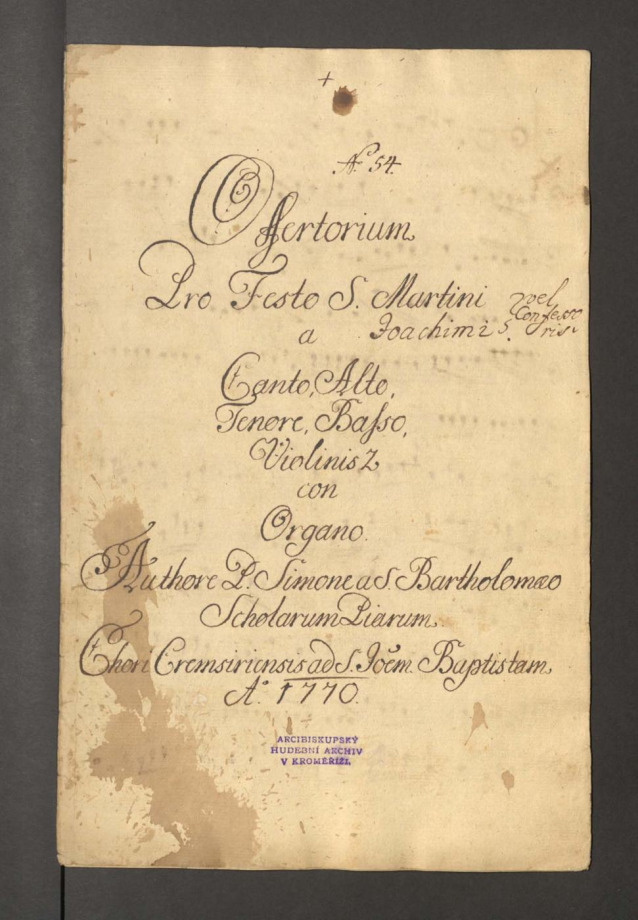 +
No 54.
Offertorium
Pro Festo S. Martini vel
Joachimi S. Confesso
ris.
a
Canto, Alto,
Tenore, Basso,
Violinis 2
con
Organo.
Authore P. Simone a S. Bartholomæo
Scholarum Piarum
Chori Cremsiriensis ad S. Joem. Baptistam
A.o 1770.
ARCIBISKUPSKÝ
HUDEBNÍ ARCHIV
V KROMĚŘÍŽI.